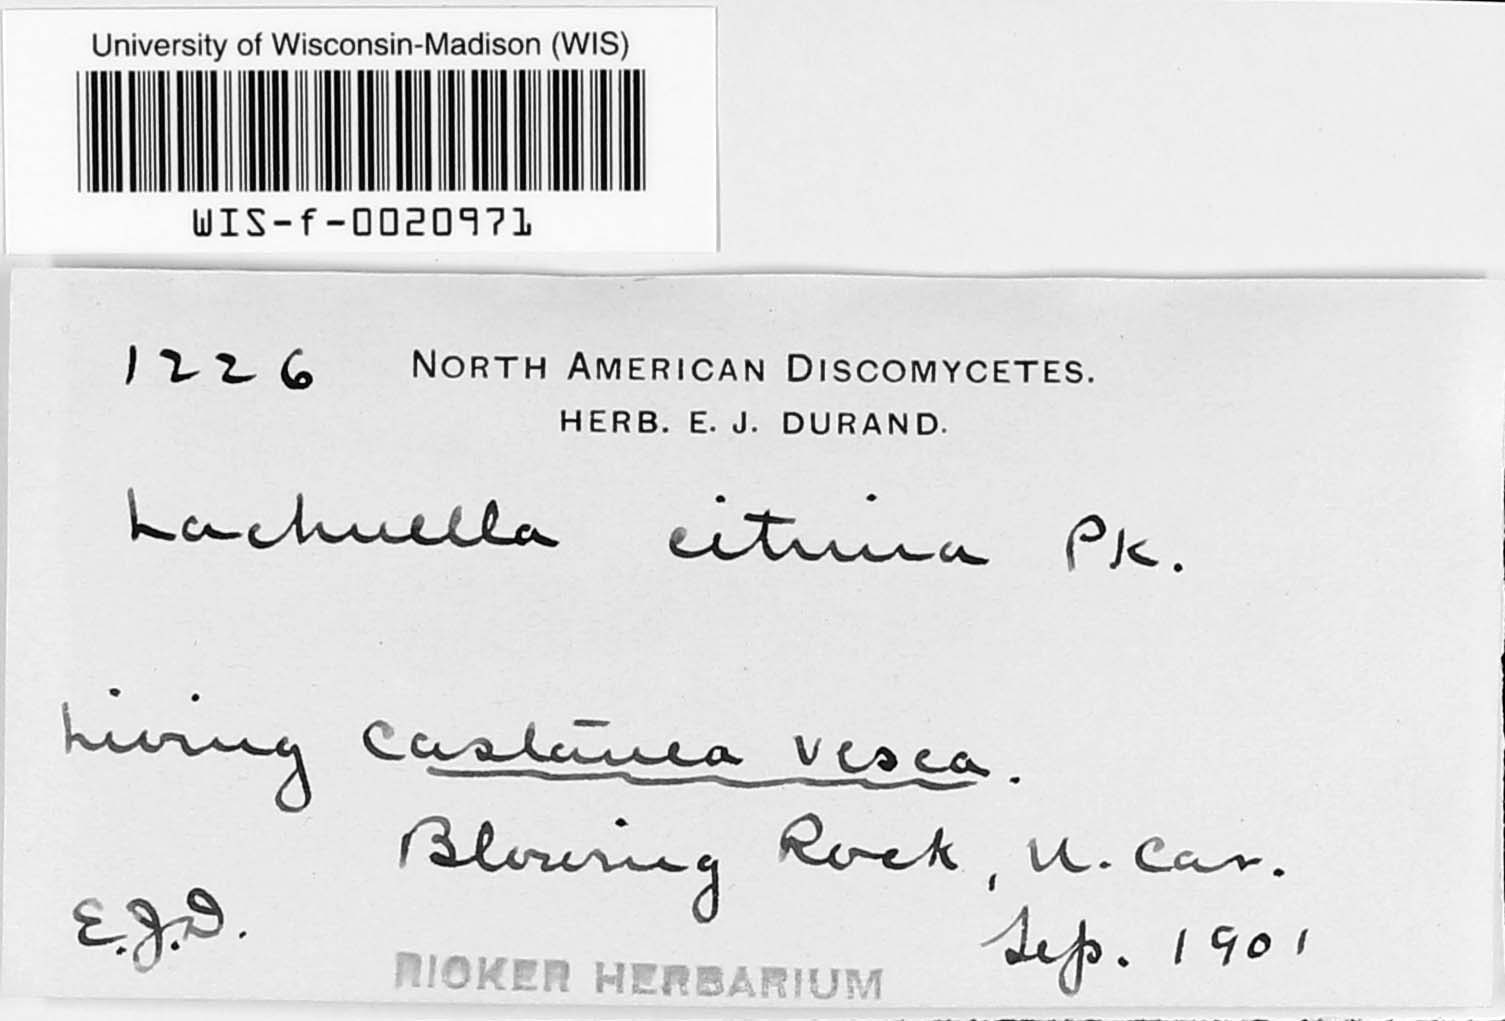 University of Wisconsin-Madison (WIS)
WIS-f-0020971
1226 NORTH AMERICAN DISCOMYCETES.
HERB. E. J. DURAND.
Lachnella citrina Pk.
Living Castanea vesca.
Blowing Rock, N. Car.
E.J.D. Sep. 1901
RICKER HERBARIUM